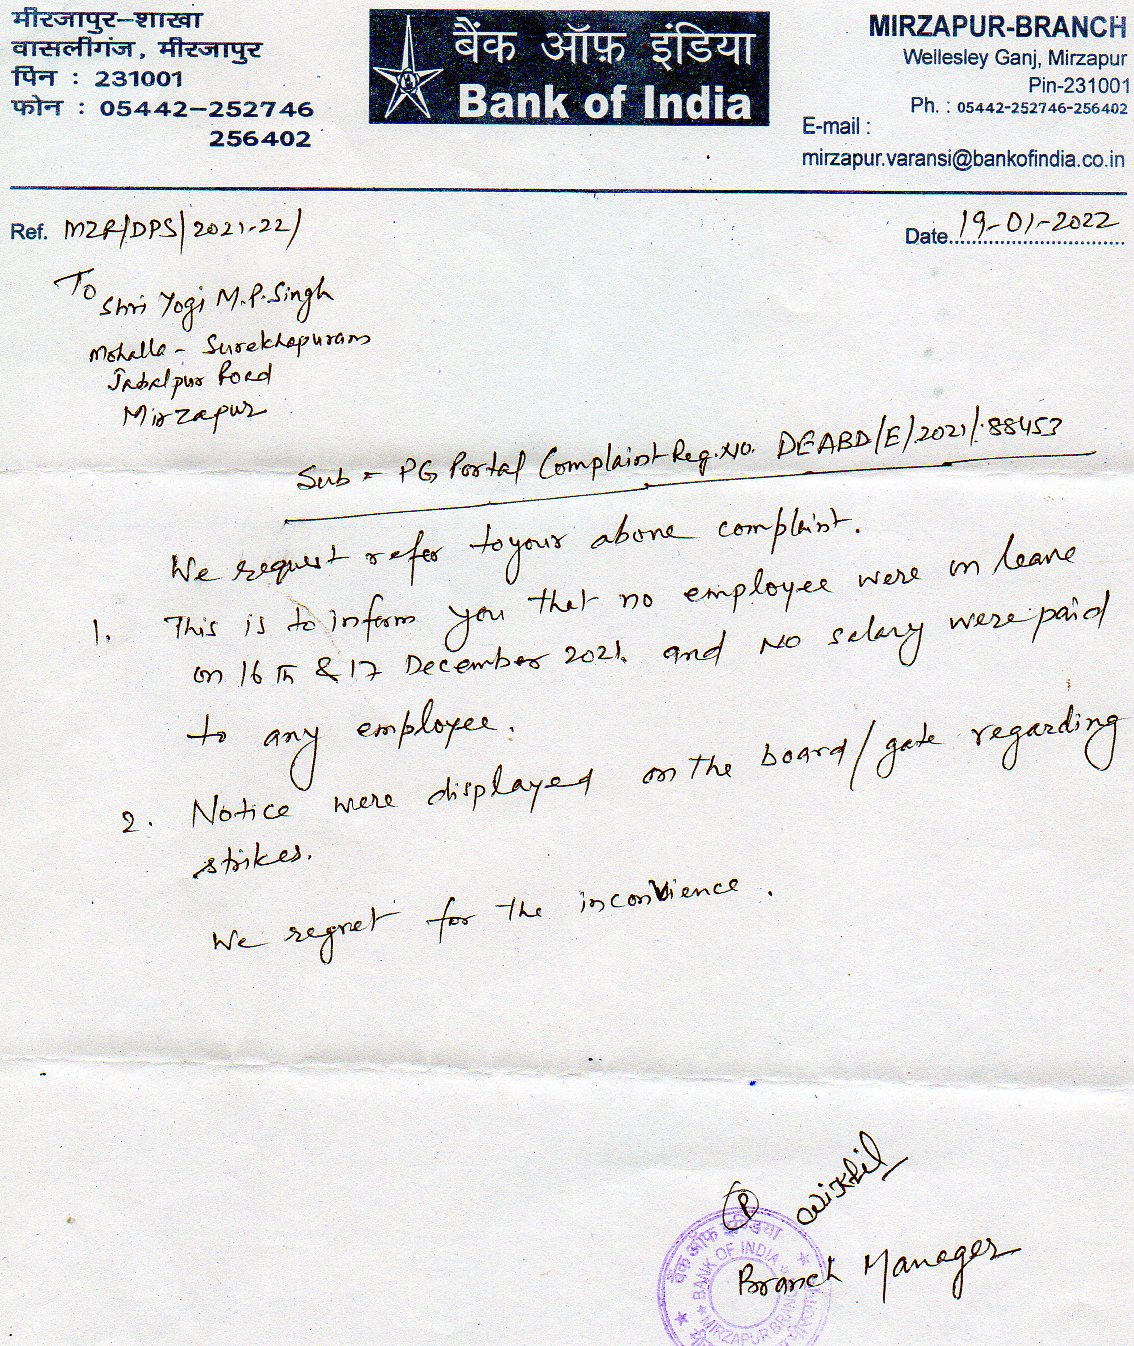 मीरजापुर–शाखा
वासलीगंज, मीरजापुर
पिन : 231001
फोन : 05442–252746
256402
बैंक ऑफ़ इंडिया
Bank of India
MIRZAPUR-BRANCH
Wellesley Ganj, Mirzapur
Pin-231001
Ph. : 05442-252746-256402
E-mail :
mirzapur.varansi@bankofindia.co.in
Ref. MZR/DPS/2021-22/
Date. 19-01-2022
To
Shri Yogi M.P. Singh
Mohalla - Surekhapuram
Jabalpur Road
Mirzapur
Sub - PG Portal Complaint Reg. No. DEABD/E/2021/88453
We request refer to your above complaint.
1. This is to inform you that no employee were on leave
on 16th & 17 December 2021. and No salary were paid
to any employee.
2. Notice were displayed on the board/gate regarding
strikes.
We regret for the inconvience.
Branch Manager
बैंक ऑफ इंडिया
BANK OF INDIA
MIRZAPUR BRANCH